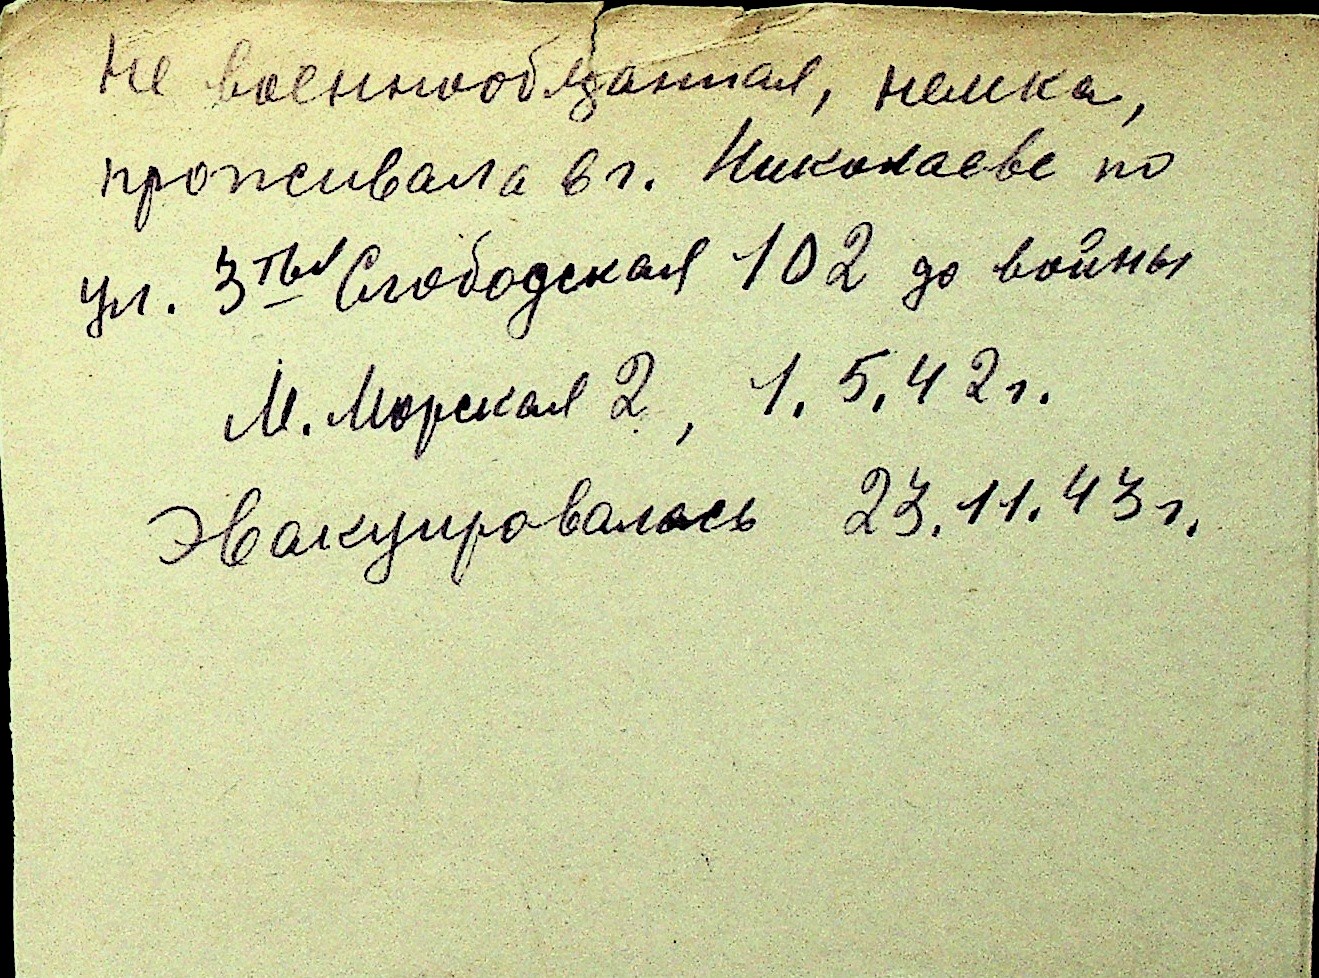 не военнообязанная, немка,
проживала в г. Николаеве по
ул. 3тья Слободская 102 до войны
М. Морская 2, 1.5.42 г.
Эвакуировалась 23.11.43 г.